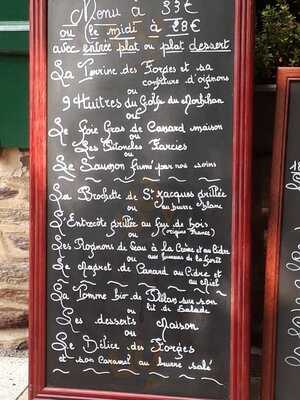 Menu à 33€
ou le midi à 28€
avec entrée plat ou plat dessert
La Terrine des Forges et sa
confiture d'oignons
ou
9 Huitres du Golfe du Morbihan
ou
Le Foie Gras de Canard maison
ou
Les Pétoncles Farcies
ou
Le Saumon fumé par nos soins
La Brochette de St Jacques grillée
ou au beurre blanc
L'Entrecôte grillée au feu de bois
ou (origine France)
Les Rognons de Veau à la Crème et au Cidre
ou aux saveurs de la forêt
Le Magret de Canard au Cidre et
au Miel
La Tomme bio de sur son
ou lit de Salade
Les desserts Maison
ou
Le Délice des Forges
et son Caramel au beurre salé